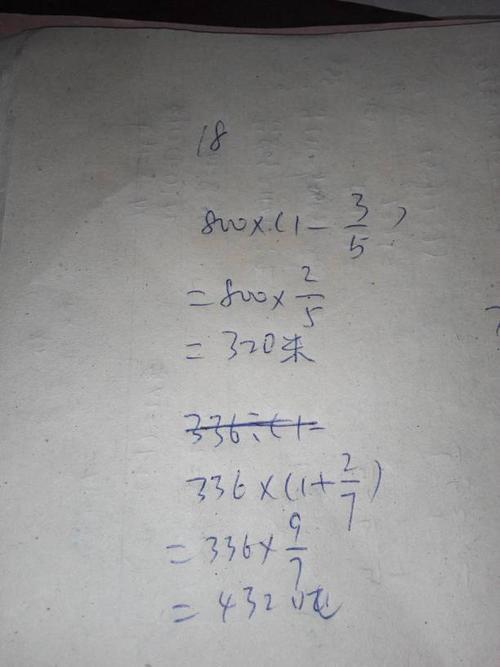 18
800×(1-3/5)
=800×2/5
=320米
336÷(1=
336×(1+2/7)
=336×9/7
=432吨